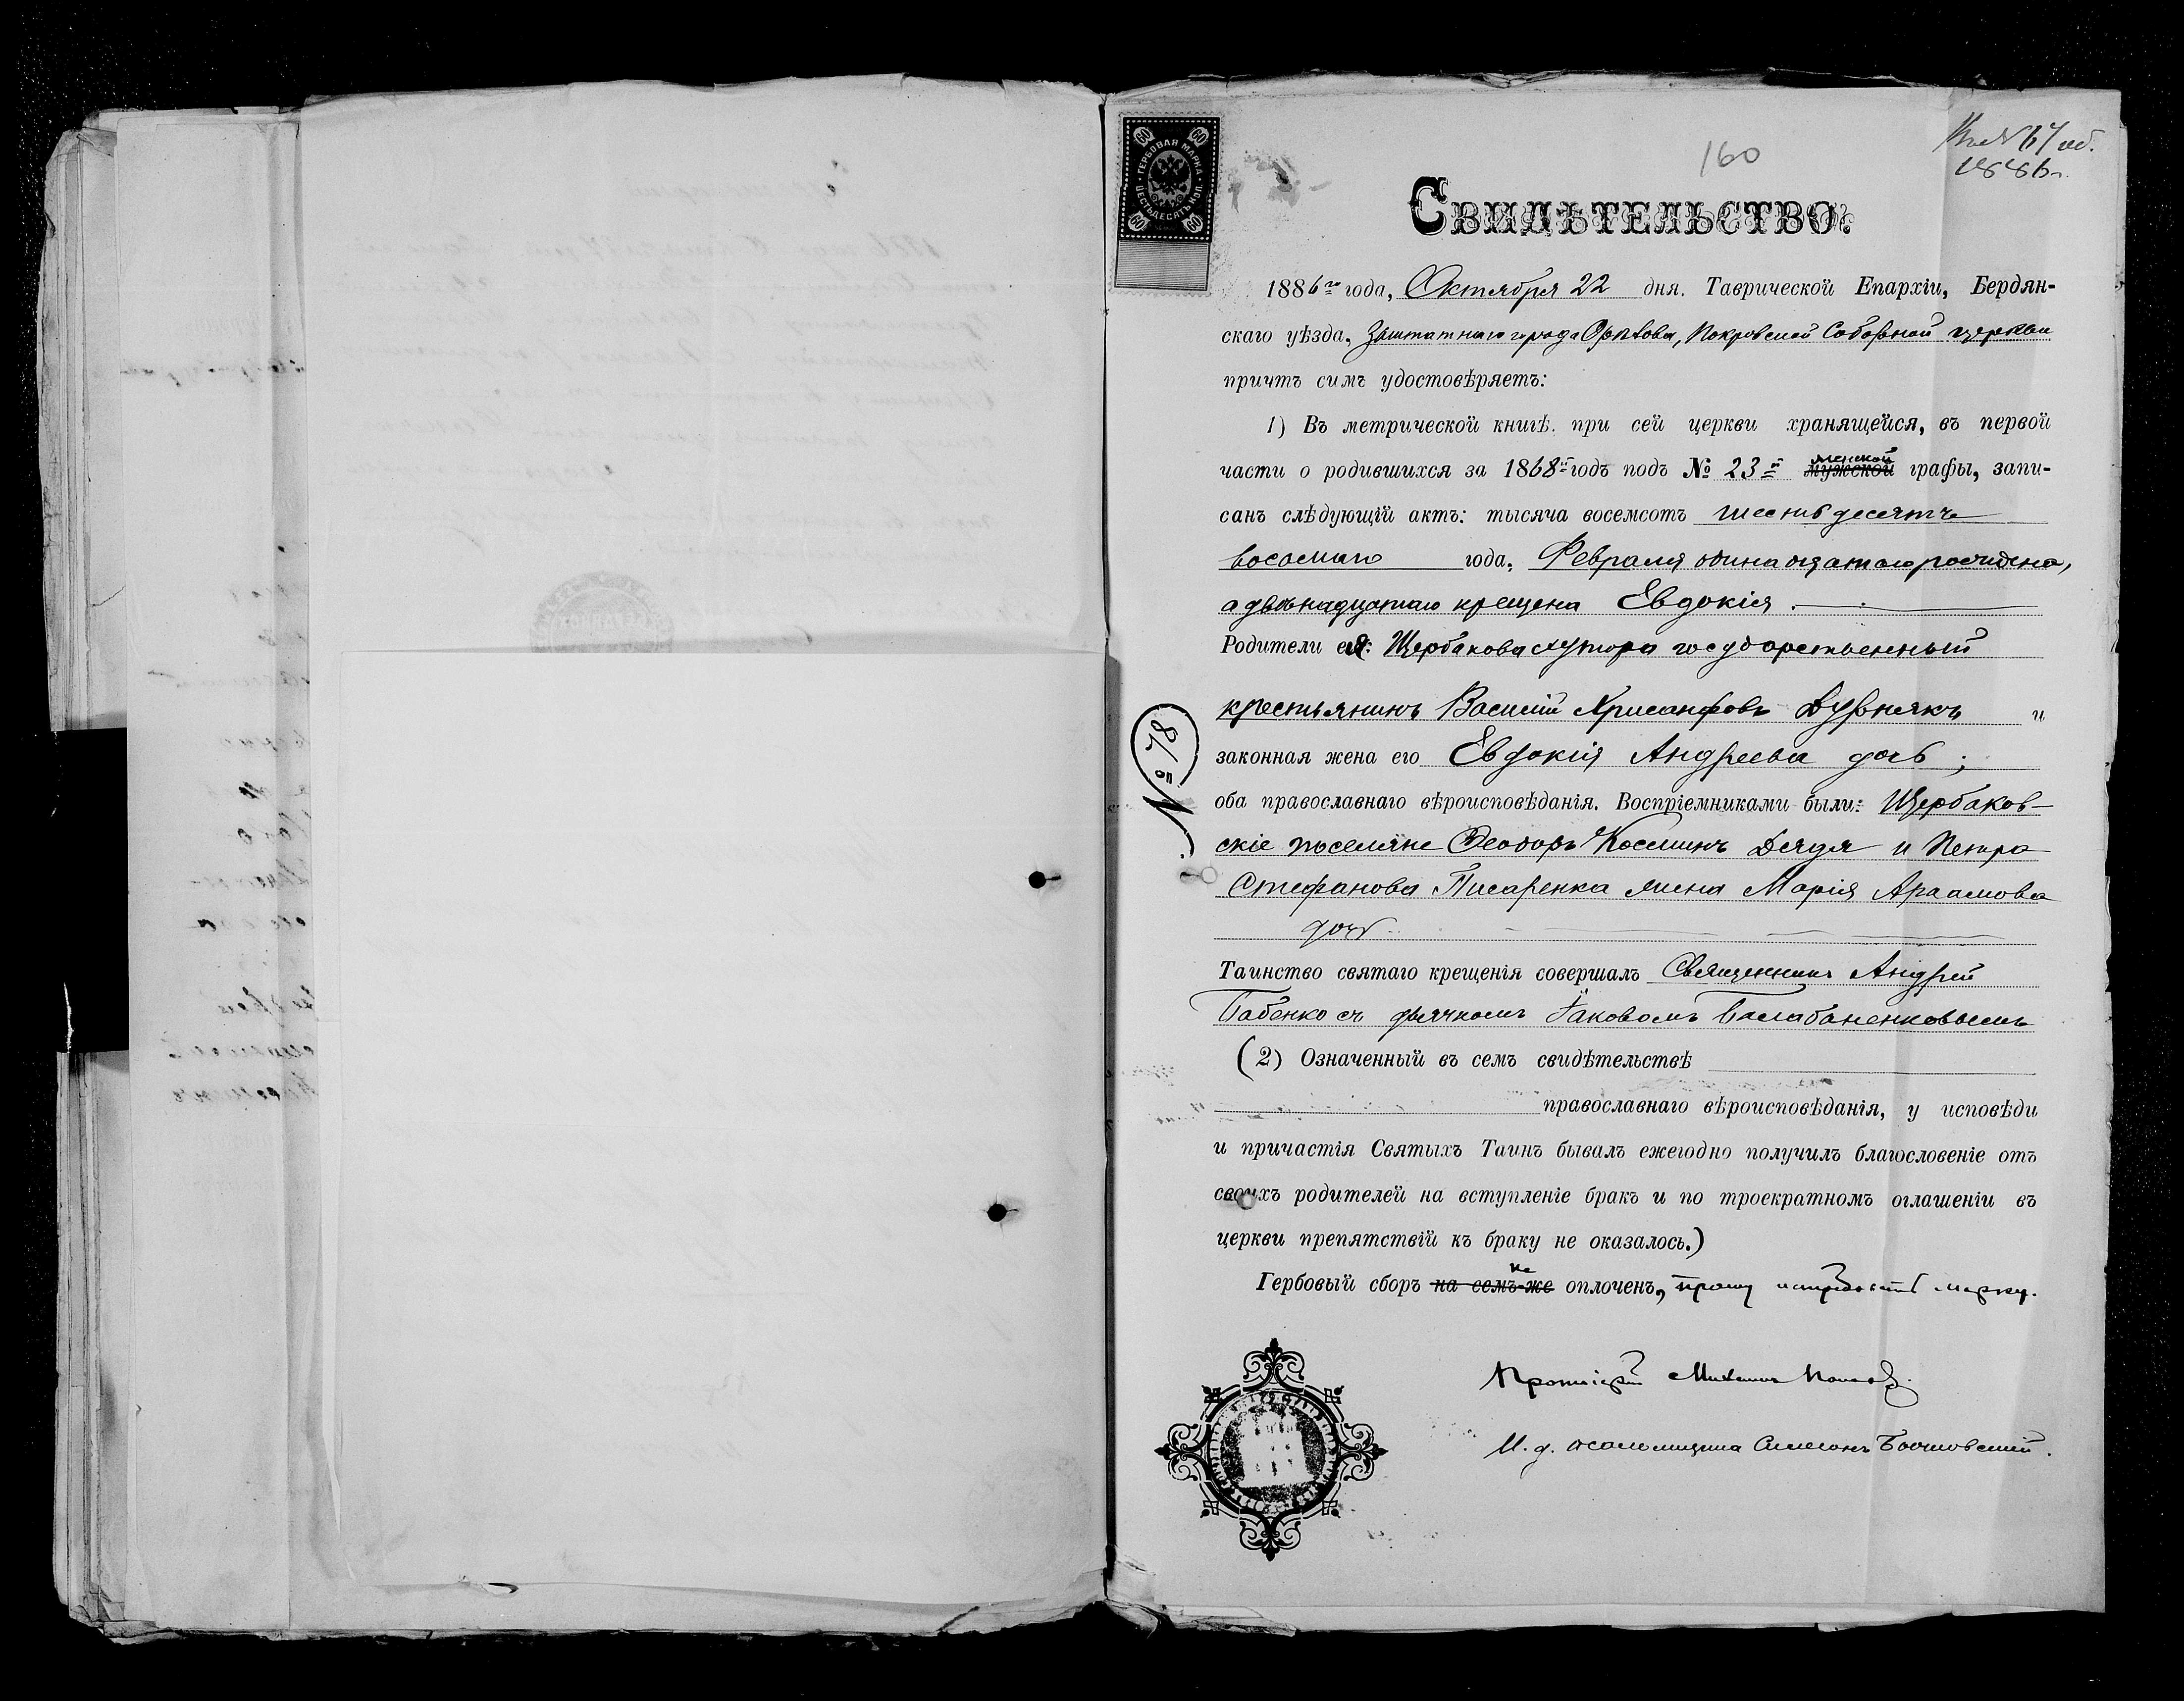 60 60
ГЕРБОВАЯ МАРКА
ШЕСТЬДЕСЯТЪ КОП.
60 60
160
1886 г.
Свидѣтельство.
1886го года, Октября 22 дня. Таврической Епархіи, Бердян-
скаго уѣзда, Заштатнаго города Орѣхова, Покровской Соборной церкви
причтъ симъ удостовѣряетъ:
1) Въ метрической книгѣ при сей церкви хранящейся, въ первой
женской
части о родившихся за 1868й годъ подъ № 23й мужской графы, запи-
санъ слѣдующій актъ: тысяча восемсотъ шестьдесятъ
восьмаго года, Февраля одинадцатаго рождена,
а двѣнадцатаго крещена Евдокія.
Родители ея: Щербакова хутора государственный
крестьянинъ Василій Хрисанфовъ Дубнякъ и
№ 78
законная жена его Евдокія Андреева дочь;
оба православнаго вѣроисповѣданія. Воспріемниками были: Щербаков-
скіе поселяне Ѳеодоръ Косминъ Дядя и Петра
Стефанова Писаренка жена Марія Аврамова
дочь
Таинство святаго крещенія совершалъ Священникъ Андрей
Бабенко съ дьячкомъ Іаковомъ Балабаненковымъ
(2) Означенный въ семъ свидѣтельствѣ
православнаго вѣроисповѣданія, у исповѣди
и причастія Святыхъ Таинъ бывалъ ежегодно получилъ благословеніе отъ
своихъ родителей на вступленіе бракъ и по троекратномъ оглашеніи въ
церкви препятствій къ браку не оказалось.)
не
Гербовый сборъ на семъ-же оплоченъ, прошу истребовать марку.
Протоіерей Михаилъ Поповъ
И. д. псаломщика Симеонъ